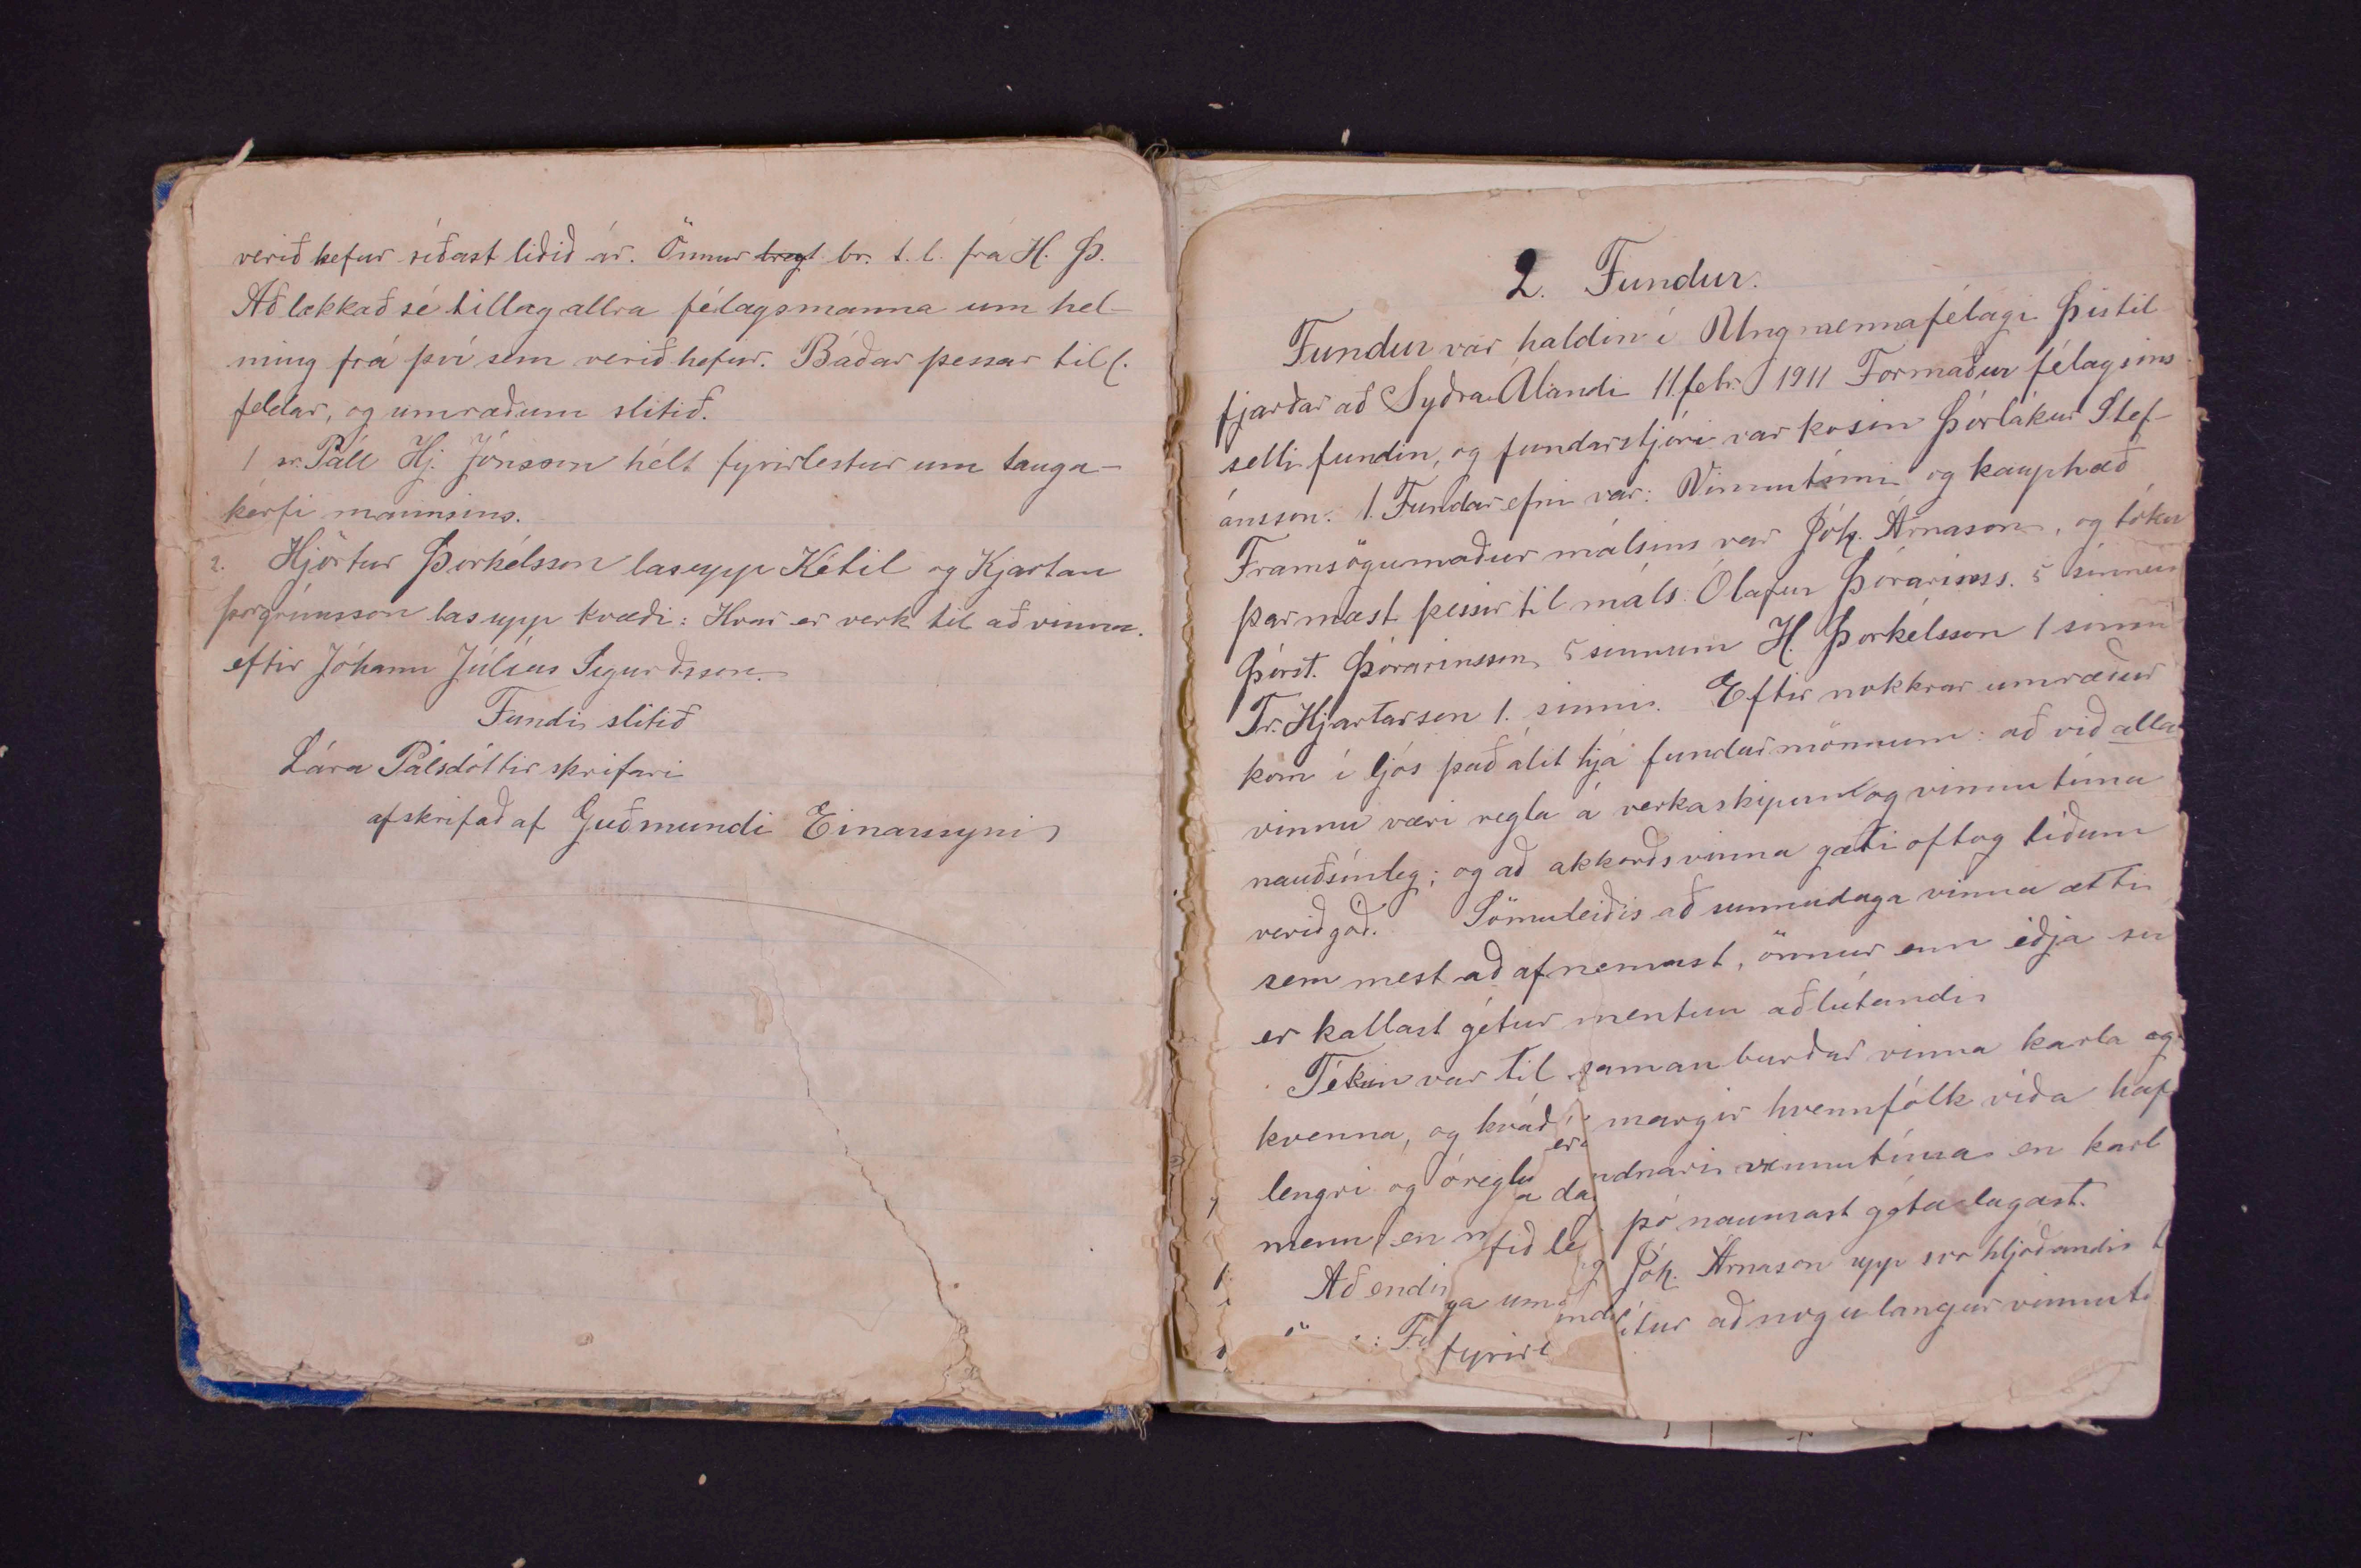 verið hefur síðast liðið ár. Önnur bregt br. t. l. frá H. Þ.
Að lækkað sé tillag allra félagsmanna um hel-
ming frá því sem verið hefur. Báðar þessar till.
feldar, og umræðum slitið.
1 sr. Páll Hj. Jónsson hélt fyrirlestur um tauga-
kerfi mannsins.
2. Hjörtur Þorkélsson las upp Kétil og Kjartan
þorgrímsson las upp kvæði: Hvar er verk til að vinna.
eftir Jóhann Júlíus Sigurðsson.
Fundi slitið
Lára Pálsdóttir skrifari
afskrifað af Guðmundi Einarssyni
2. Fundur.
Fundur var haldin í Ungmennafélagi Þistil
fjarðar að Syðra-Álandi 11. febr. 1911 Formaður félagsins
setti fundin, og fundarstjóri var kosin Þorlákur Stef-
ánsson. 1. Fundarefni var: Vinnutími og kauphæð
Framsögumaður málsins var Jóh. Árnason, og tóku
þarnæst þessir til máls. Ólafur Þórarinss. 5 sinnum
Þórst. Þórarinsson 5 sinnum H. Þorkélsson 1 sinni
Tr. Hjartarson 1. sinni. Eftir nokkrar umræður
kom í ljós það álit hjá fundarmönnum: að við alla
vinnu væri regla á verkaskipun og vinnutíma
nauðsínleg; og að akkorðsvinna gæti oft og tíðum
verið góð. Sömuleiðis að sunnudaga vinna ætti
sem mest að afnemast, önnur enn iðja sú
er kallast gétur mentun aðlútandi
Tékin var til samanburðar vinna karla og
kvenna, og kváð margir kvennfólk víða haf
lengri og óreglu ndnari vinnutíma en karl
menn en þó naumast géta lagast.
Að endi Jóh. Árnason upp svo hljóðandi t
ítur að nógu langur vinnutí
fyrirl